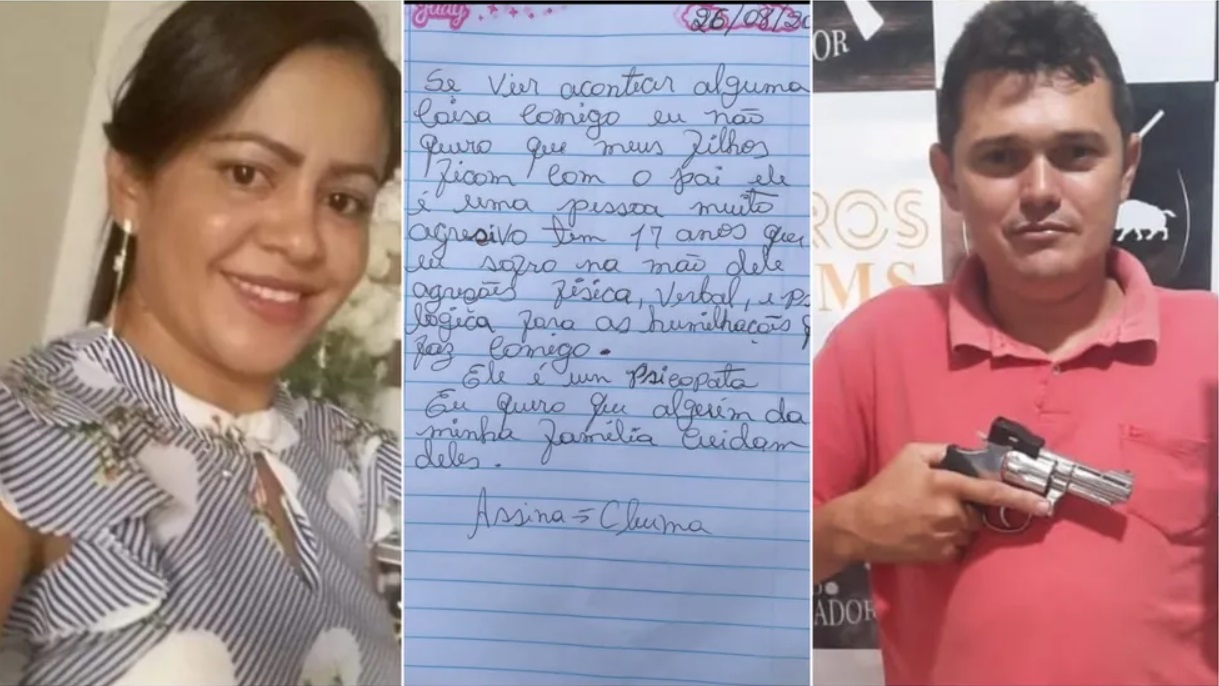 Judy
26/08/20
Se vier aconticar alguma
Coisa Comigo eu não
quero que meus filhos
ficam com o pai ele
é uma pessoa muito
agresivo tem 17 anos que
eu sofro na mão dele
agreções física, Verbal, e ps
lógica fora as humilhações q
faz Comigo.
Ele é um Psicopata
Eu quero que alguém da
minha família Cuidam
deles.
Assina =
OR
ROS
MS
ADOR